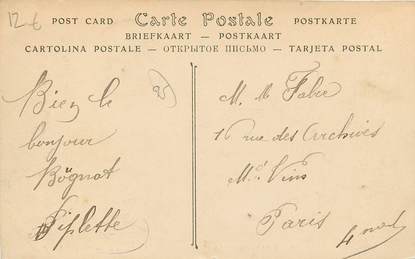 12€
POST CARD Carte Postale POSTKARTE
BRIEFKAART — POSTKAART
CARTOLINA POSTALE — ОТКРЫТОЕ ПИСЬМО — TARJETA POSTAL
Bien le
bonjour
Bognot
Piplette
M. M Fabre
16 rue des Archives
Md Vins
Paris
4